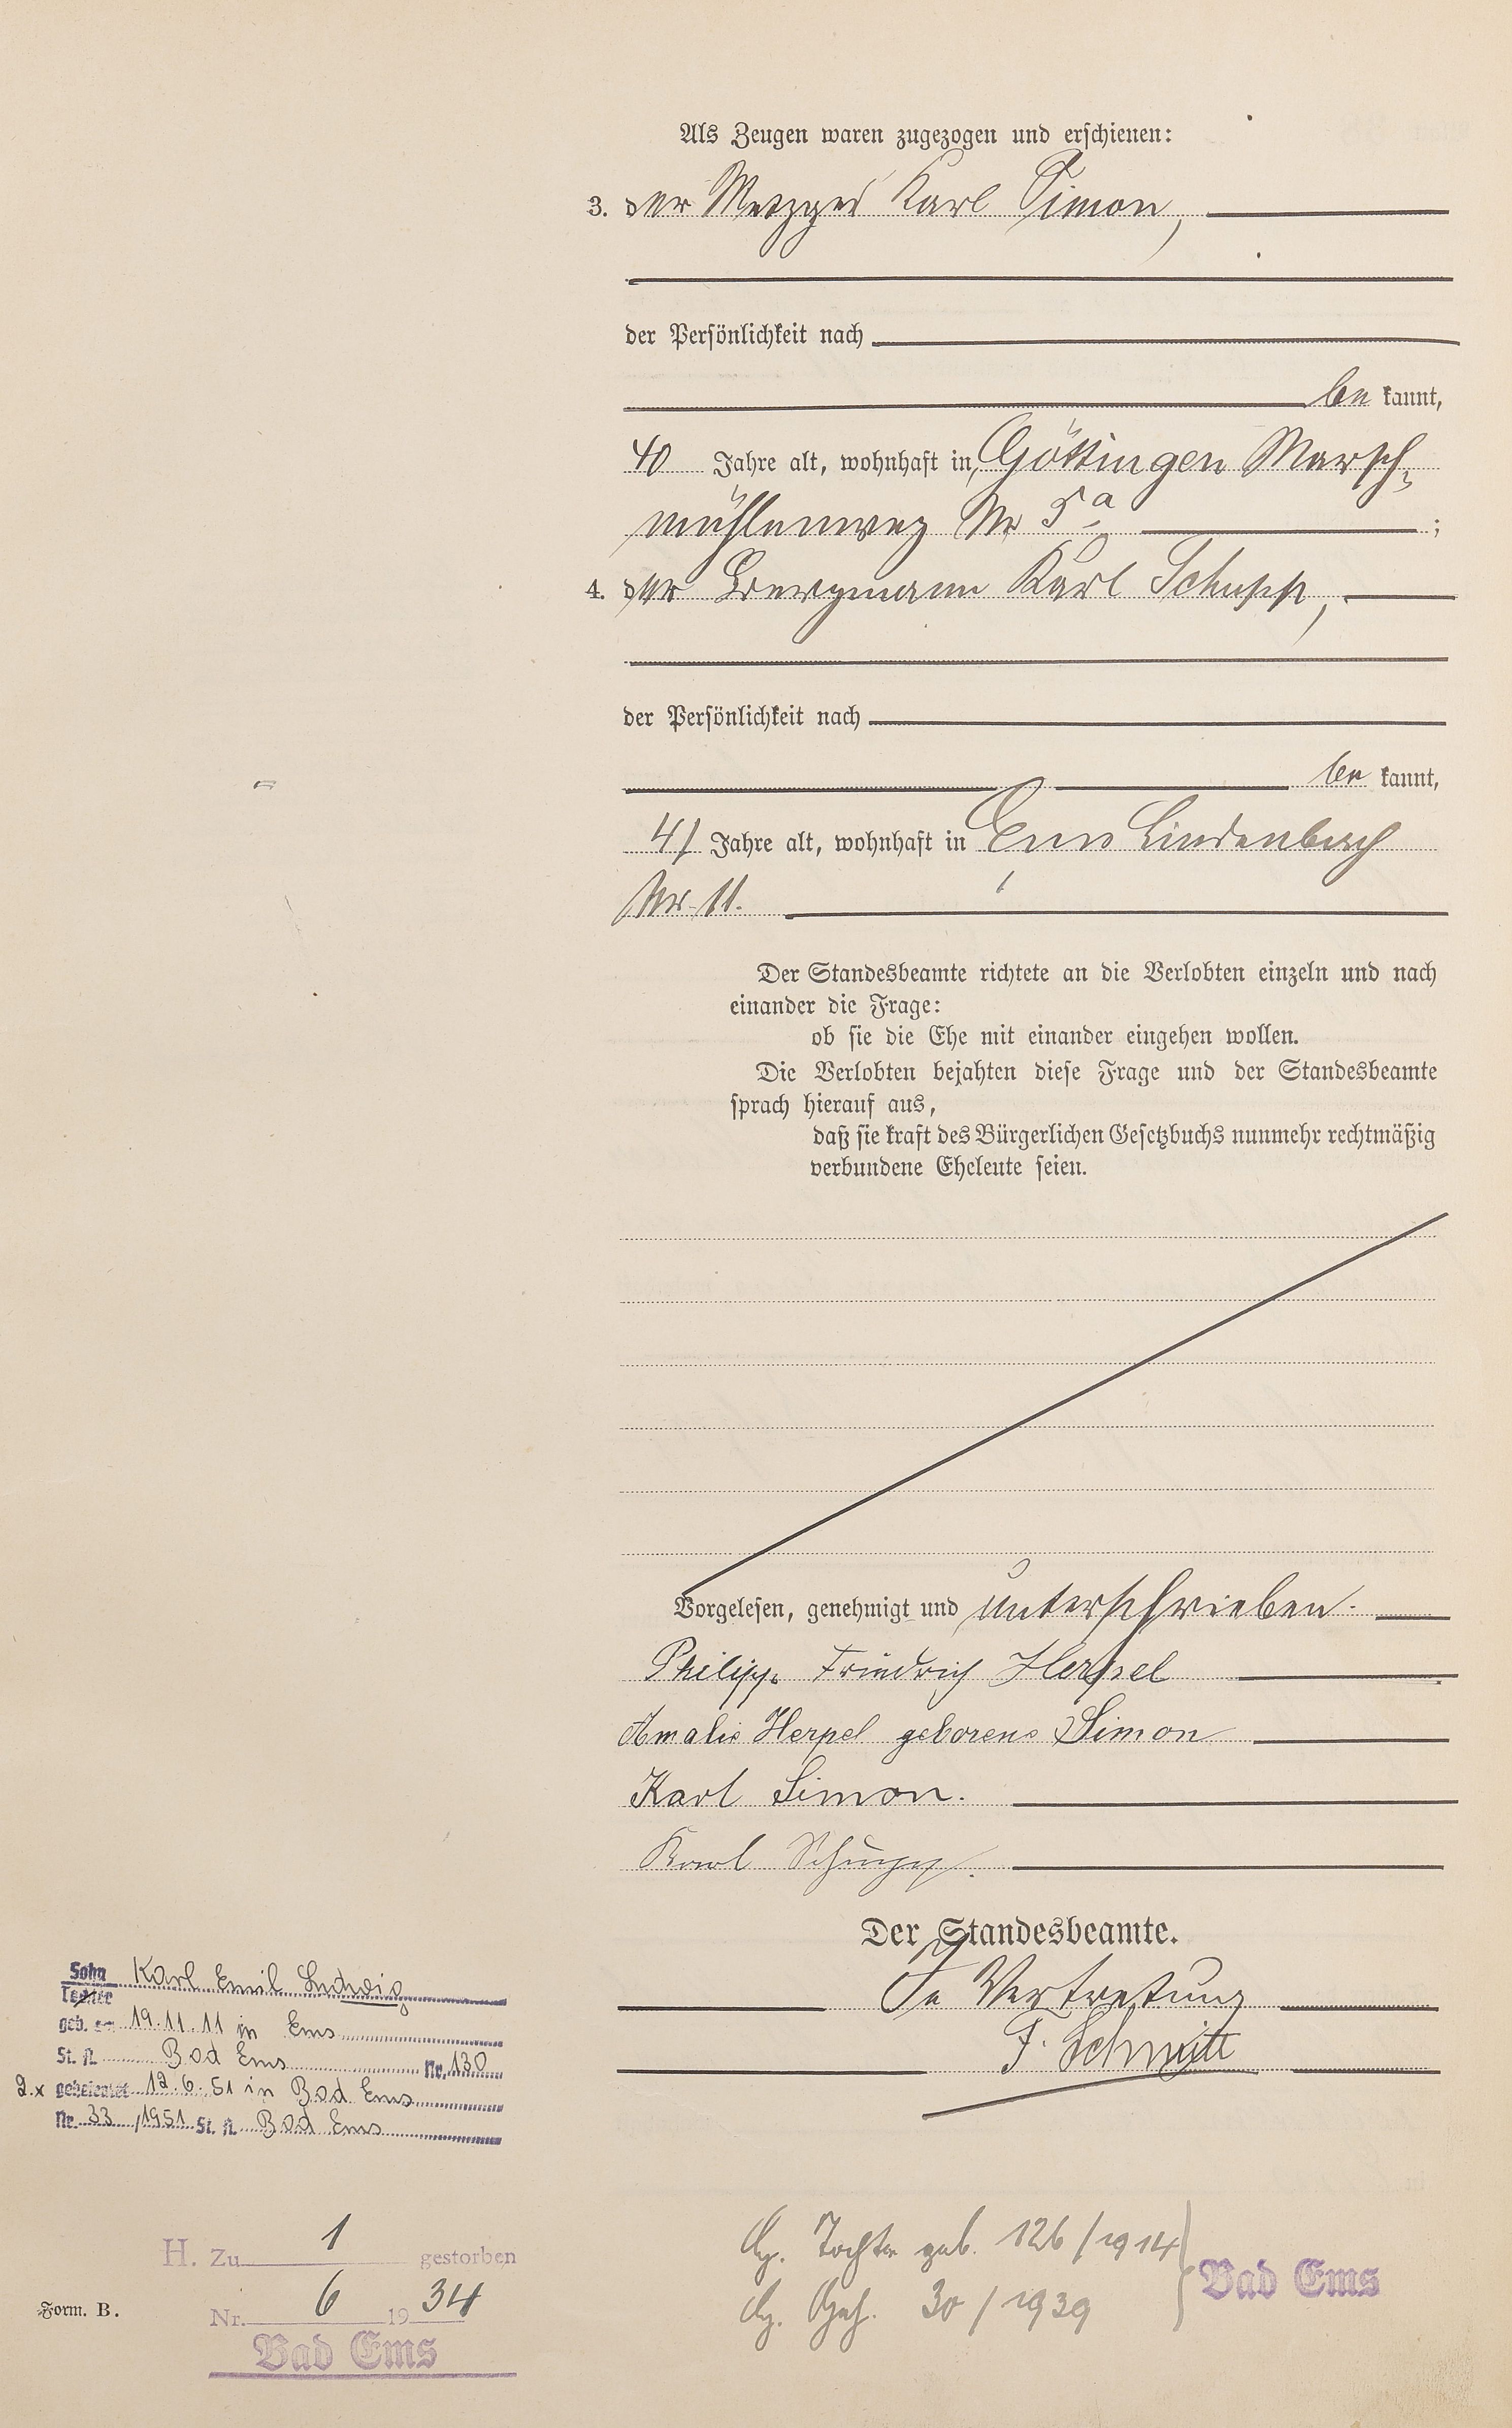 Als Zeugen waren zugezogen und erschienen:
3. der Metzger Karl Simon,
der Persönlichkeit nach
be kannt,
40 Jahre alt, wohnhaft in Göttingen Marsch-
mühlenweg Nr 5a ;
4. der Bergmann Karl Schupp,
der Persönlichkeit nach
be kannt,
41 Jahre alt, wohnhaft in Ems Lindenbach
Nr. 11.
Der Standesbeamte richtete an die Verlobten einzeln und nach
einander die Frage:
ob sie die Ehe mit einander eingehen wollen.
Die Verlobten bejahten diese Frage und der Standesbeamte
sprach hierauf aus,
daß sie kraft des Bürgerlichen Gesetzbuchs nunmehr rechtmäßig
verbundene Eheleute seien.
Vorgelesen, genehmigt und unterschrieben.
Philipp Friedrich Herpel
Amalie Herpel geborene Simon
Karl Simon.
Karl Schupp.
Der Standesbeamte.
In Vertretung
F. Schmitt
Sohn Karl Emil Ludwig
Tochter
geb. am 19.11.11 in Ems
St. A. Bad Ems Nr. 130
2.x geheiratet 12.6.51 in Bad Ems
Nr. 33 /1951 St. A. Bad Ems
H. Zu 1 gestorben
Nr. 6 1934
Bad Ems
Form. B.
Tochter geb. 126/1914
30/1939
Bad Ems